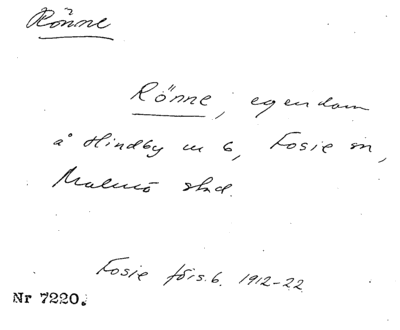 Rönne
Rönne, egendom
å Hindby nr 6, Fosie sn,
Malmö stad.
Fosie förs.b. 1912-22
Nr 7220.